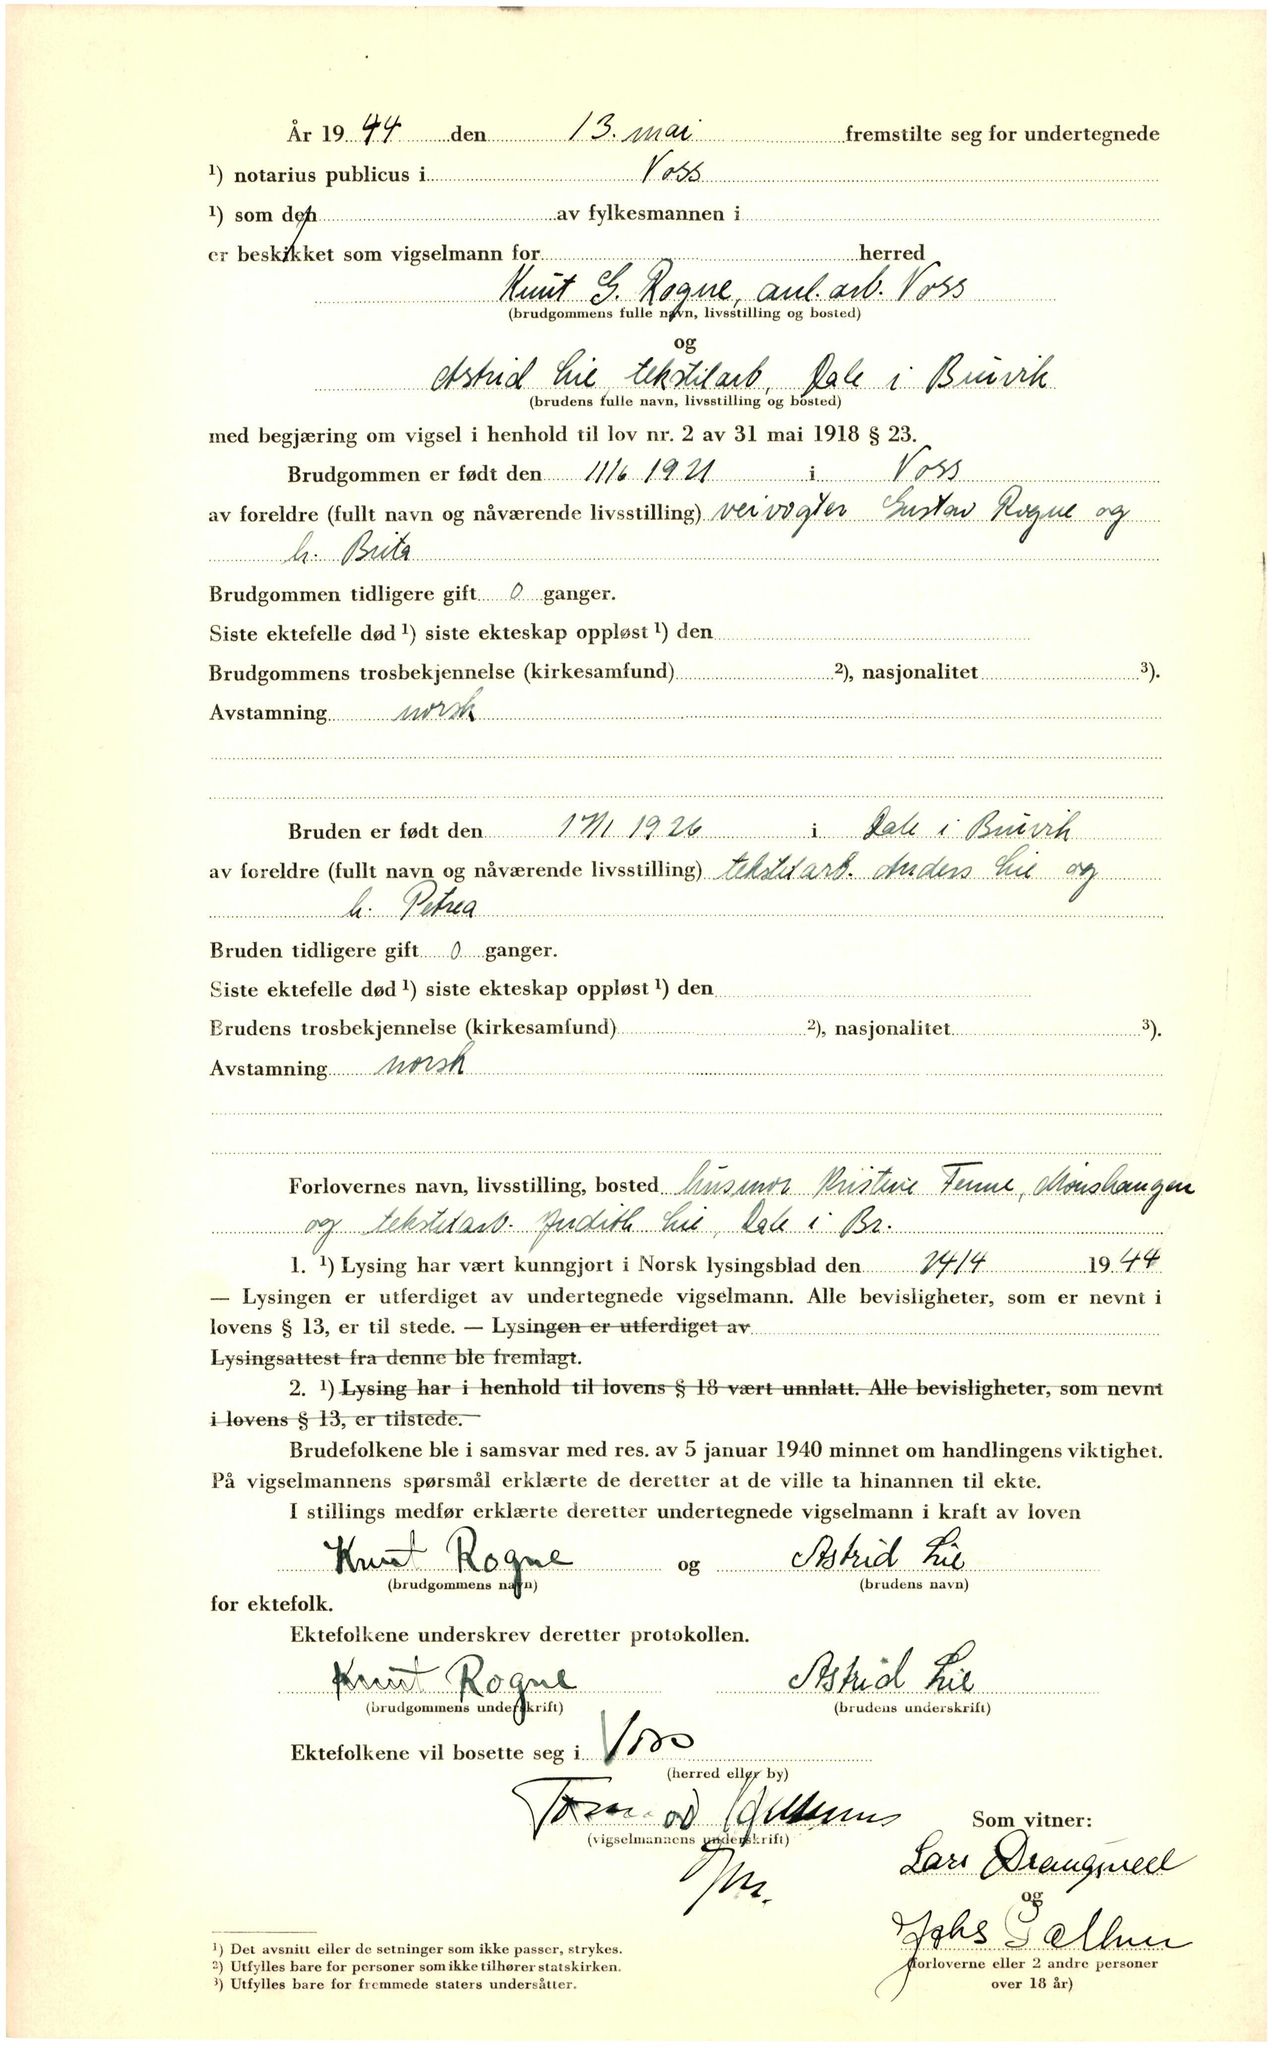 År 1944 den 13. mai fremstilte seg for undertegnede
1) notarius publicus i Voss
1) som den av fylkesmannen i
er beskikket som vigselmann for herred
Knut G. Rogne, anl. arb. Voss
(brudgommens fulle navn, livsstilling og bosted)
og
Astrid Lie, tekstilarb, Dale i Bruvik
(brudens fulle navn, livsstilling og bosted)
med begjæring om vigsel i henhold til lov nr. 2 av 31 mai 1918 § 23.
Brudgommen er født den 11/6 1921 i Voss
av foreldre (fullt navn og nåværende livsstilling) veivogter Gustav Rogne og
h. Brita
Brudgommen tidligere gift 0 ganger.
Siste ektefelle død 1) siste ekteskap oppløst 1) den
Brudgommens trosbekjennelse (kirkesamfund) 2), nasjonalitet 3).
Avstamning norsk
Bruden er født den 17/1 1926 i Dale i Bruvik
av foreldre (fullt navn og nåværende livsstilling) tekstilarb. Anders Lie og
h. Petrea
Bruden tidligere gift 0 ganger.
Siste ektefelle død 1) siste ekteskap oppløst 1) den
Brudens trosbekjennelse (kirkesamfund) 2), nasjonalitet 3).
Avstamning norsk
Forlovernes navn, livsstilling, bosted husmor Kristine Tenne, Mønshaugen
og tekstilarb. Judith Lie, Dale i Br.
1. 1) Lysing har vært kunngjort i Norsk lysingsblad den 24/4 1944
— Lysingen er utferdiget av undertegnede vigselmann. Alle bevisligheter, som er nevnt i
lovens § 13, er til stede. — Lysingen er utferdiget av
Lysingsattest fra denne ble fremlagt.
2. 1) Lysing har i henhold til lovens § 18 vært unnlatt. Alle bevisligheter, som nevnt
i lovens § 13, er tilstede.
Brudefolkene ble i samsvar med res. av 5 januar 1940 minnet om handlingens viktighet.
På vigselmannens spørsmål erklærte de deretter at de ville ta hinannen til ekte.
I stillings medfør erklærte deretter undertegnede vigselmann i kraft av loven
Knut Rogne og Astrid Lie
(brudgommens navn) (brudens navn)
for ektefolk.
Ektefolkene underskrev deretter protokollen.
Knut Rogne Astrid Lie
(brudgommens underskrift) (brudens underskrift)
Ektefolkene vil bosette seg i Voss
(herred eller by)
(vigselmannens underskrift)
Som vitner:
Lars
og
Johs
(forloverne eller 2 andre personer
over 18 år)
1) Det avsnitt eller de setninger som ikke passer, strykes.
2) Utfylles bare for personer som ikke tilhører statskirken.
3) Utfylles bare for fremmede staters undersåtter.